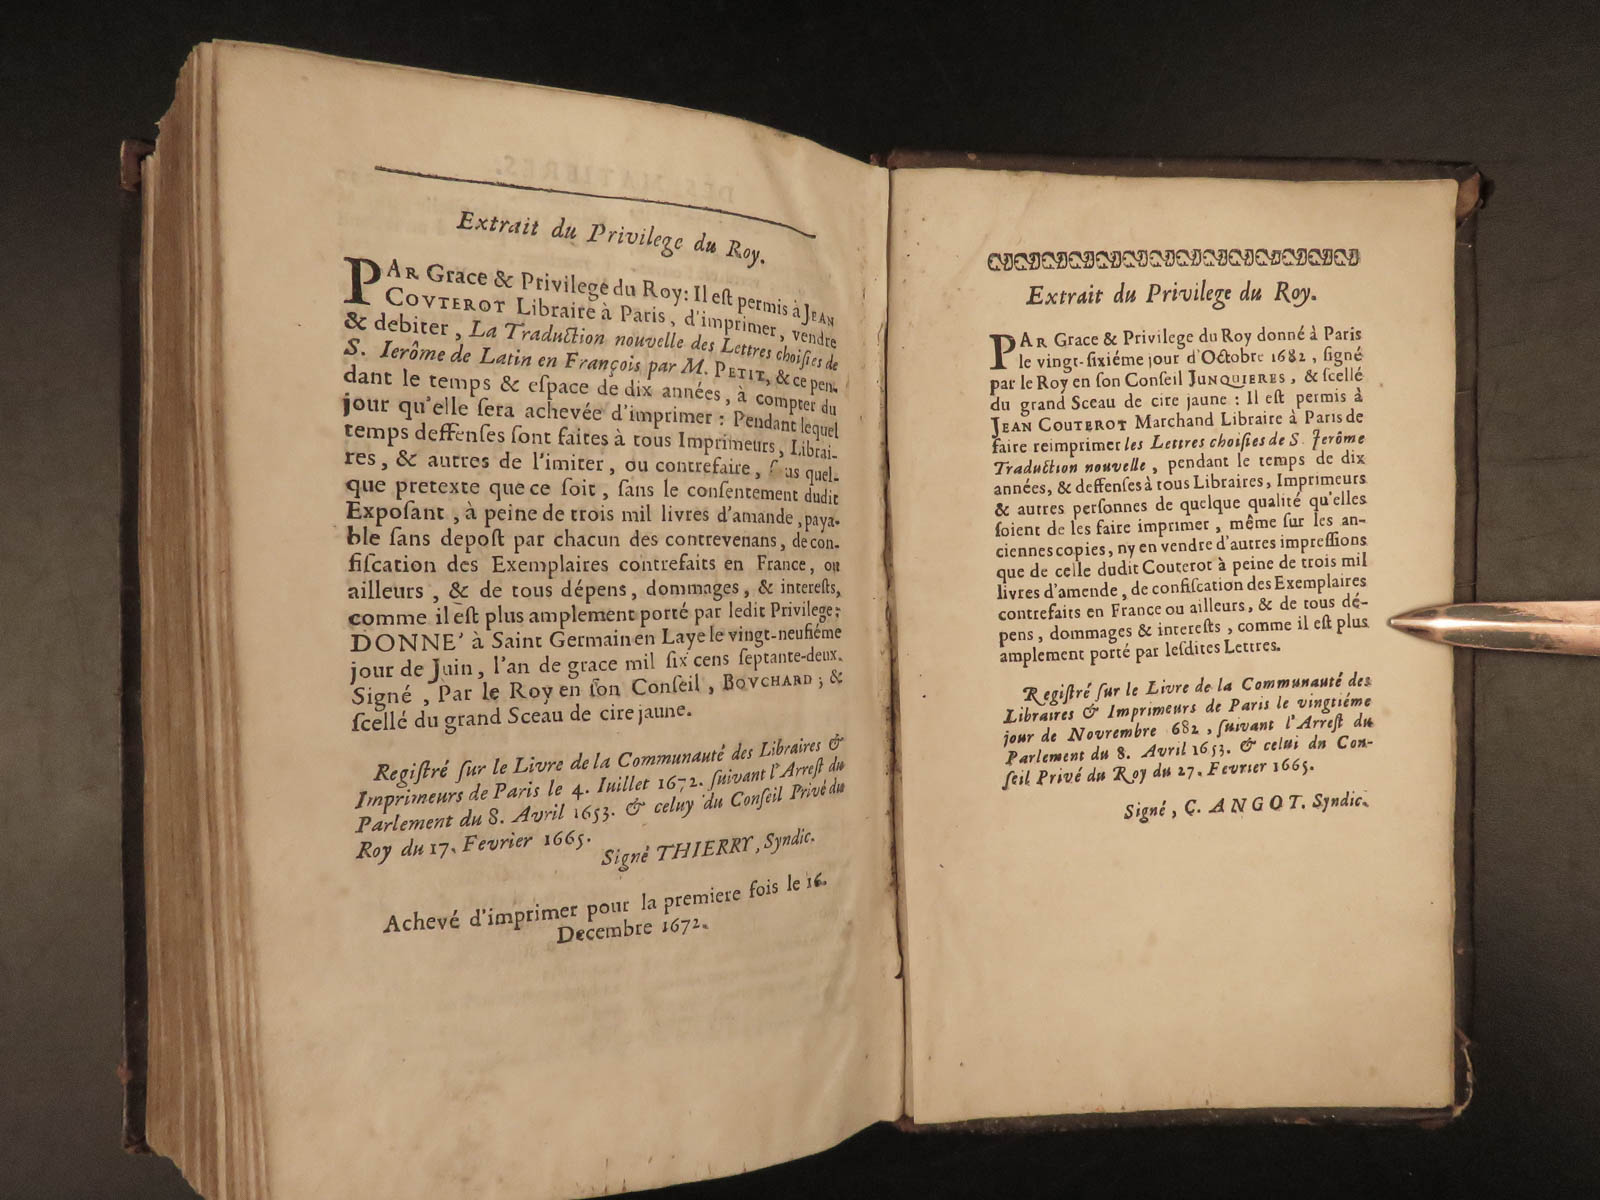 Extrait du Privilege du Roy.
PAR Grace & Privilege du Roy: Il eſt permis à JEAN
COVTEROT Libraire à Paris, d'imprimer, vendre
& debiter, La Traduction nouvelle des Lettres choiſies de
S. Ierôme de Latin en François par M. PETIT, & ce pen-
dant le temps & eſpace de dix années, à compter du
jour qu'elle ſera achevée d'imprimer : Pendant lequel
temps deffenſes ſont faites à tous Imprimeurs, Librai-
res, & autres de l'imiter, ou contrefaire, ſ us quel-
que pretexte que ce ſoit, ſans le conſentement dudit
Expoſant, à peine de trois mil livres d'amande, paya-
ble ſans depoſt par chacun des contrevenans, de con-
fiſcation des Exemplaires contrefaits en France, ou
ailleurs, & de tous dépens, dommages, & intereſts,
comme il eſt plus amplement porté par ledit Privilege;
DONNE' à Saint Germain en Laye le vingt-neufiéme
jour de Juin, l'an de grace mil ſix cens ſeptante-deux.
Signé, Par le Roy en ſon Conſeil, BOVCHARD; &
ſcellé du grand Sceau de cire jaune.
Regiſtré ſur le Livre de la Communauté des Libraires &
Imprimeurs de Paris le 4. Iuillet 1672. ſuivant l'Arreſt du
Parlement du 8. Avril 1653. & celuy du Conſeil Privé du
Roy du 17. Fevrier 1665.
Signé THIERRY, Syndic.
Achevé d'imprimer pour la premiere fois le 16.
Decembre 1672.
Extrait du Privilege du Roy.
PAR Grace & Privilege du Roy donné à Paris
le vingt-ſixiéme jour d'Octobre 1682, ſigné
par le Roy en ſon Conſeil JUNQUIERES, & ſcellé
du grand Sceau de cire jaune : Il eſt permis à
JEAN COUTEROT Marchand Libraire à Paris de
faire reimprimer les Lettres choiſies de S. Jerôme
Traduction nouvelle, pendant le temps de dix
années, & deffenſes à tous Libraires, Imprimeurs
& autres perſonnes de quelque qualité qu'elles
ſoient de les faire imprimer, même ſur les an-
ciennes copies, ny en vendre d'autres impreſſions
que de celle dudit Couterot à peine de trois mil
livres d'amende, de confiſcation des Exemplaires
contrefaits en France ou ailleurs, & de tous dé-
pens, dommages & intereſts, comme il eſt plus
amplement porté par leſdites Lettres.
Regiſtré ſur le Livre de la Communauté des
Libraires & Imprimeurs de Paris le vingtiéme
jour de Novembre 682, ſuivant l'Arreſt du
Parlement du 8. Avril 1653. & celui dn Con-
ſeil Privé du Roy du 27. Fevrier 1665.
Signé, C. ANGOT. Syndic.